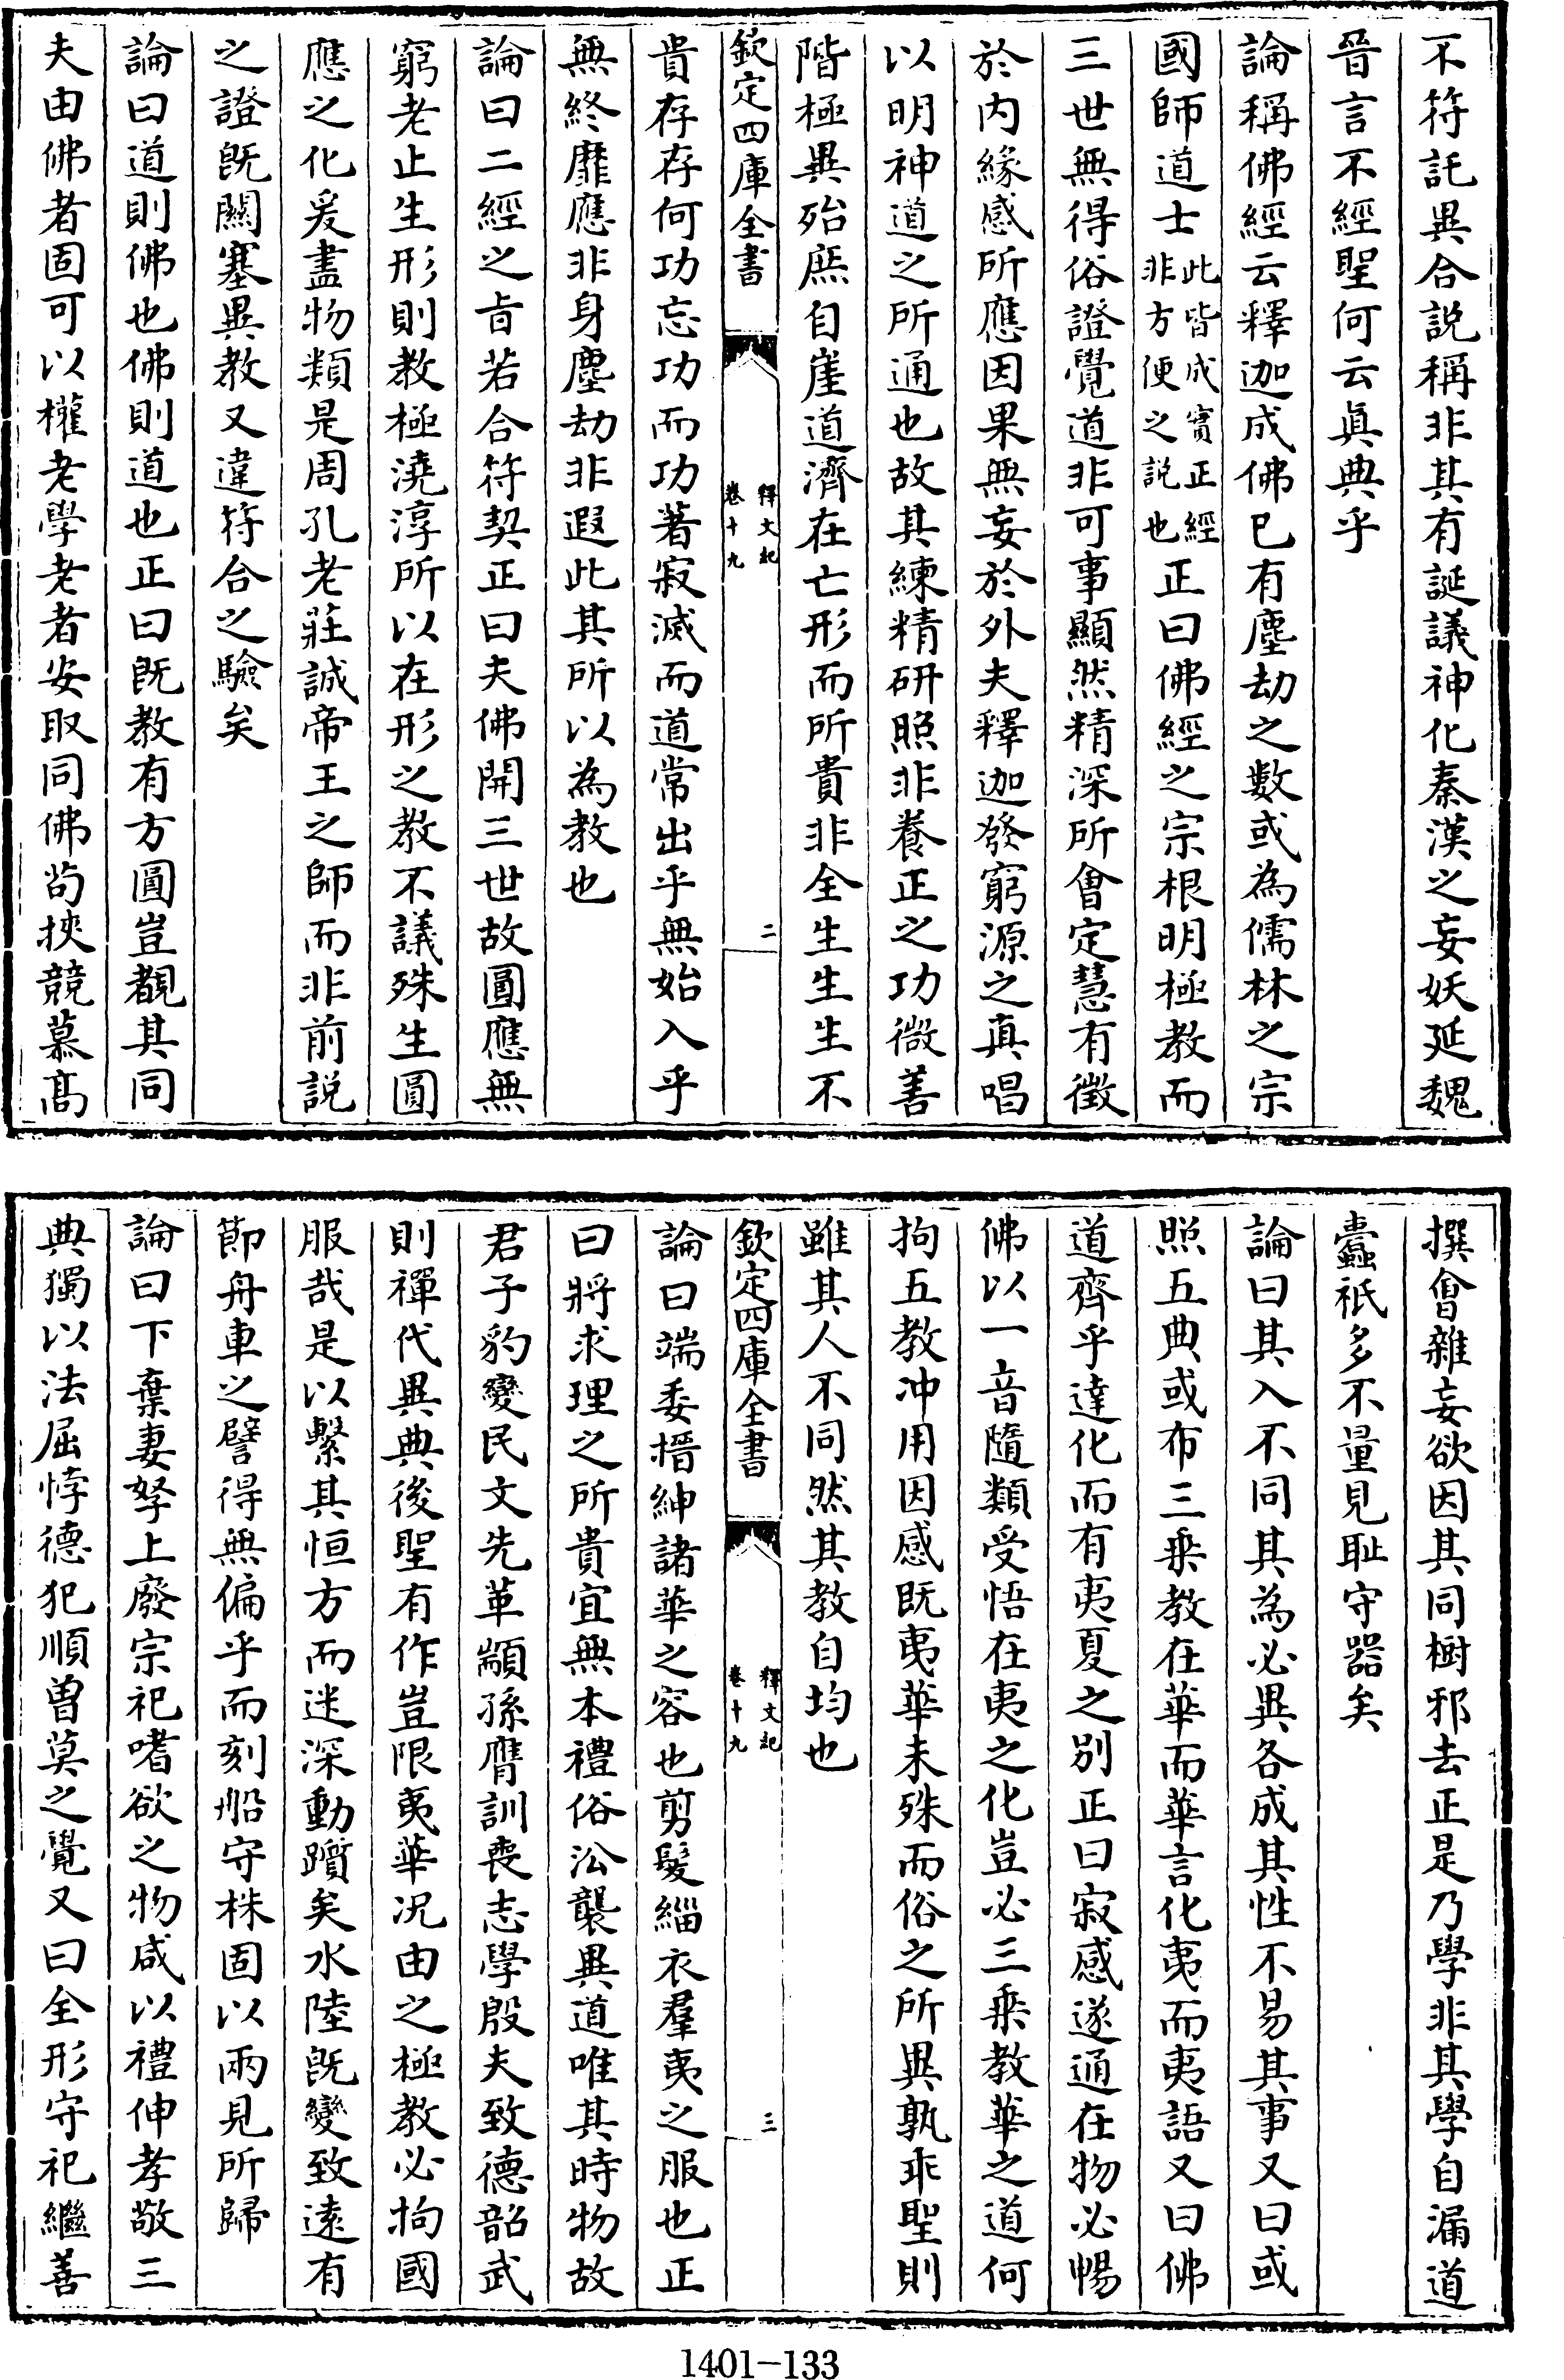 不符託異合説稱非其有誕議神化秦漢之妄妖延魏
晉言不經聖何云真典乎
論稱佛經云釋迦成佛已有塵劫之數或為儒林之宗
國師道士此皆成實正經非方便之説也正曰佛經之宗根明極教而
三世無得俗證覺道非可事顯然精深所會定慧有徵
於内緣感所應因果無妄於外夫釋迦發窮源之真唱
以明神道之所通也故其練精研照非養正之功微善
階極異殆庶自崖道濟在亡形而所貴非全生生生不
欽定四庫全書
釋文紀
卷十九
二
貴存存何功忘功而功著寂滅而道常出乎無始入乎
無終靡應非身塵劫非遐此其所以為教也
論曰二經之㫖若合符契正曰夫佛開三世故圓應無
窮老止生形則教極澆淳所以在形之教不議殊生圓
應之化爰盡物類是周孔老莊誠帝王之師而非前説
之證既闗塞異教又違符合之驗矣
論曰道則佛也佛則道也正曰既教有方圓豈覩其同
夫由佛者固可以權老學老者安取同佛茍挾競慕髙
撰會雜妄欲因其同樹邪去正是乃學非其學自漏道
蠧祇多不量見耻守器矣
論曰其入不同其為必異各成其性不易其事又曰或
照五典或布三乘教在華而華言化夷而夷語又曰佛
道齊乎達化而有夷夏之别正曰寂感遂通在物必暢
佛以一音隨類受悟在夷之化豈必三乘教華之道何
拘五教冲用因感既夷華未殊而俗之所異孰乖聖則
雖其人不同然其教自均也
欽定四庫全書
釋文紀
卷十九
三
論曰端委搢紳諸華之容也剪髮緇衣羣夷之服也正
曰將求理之所貴宜無本禮俗㳂襲異道唯其時物故
君子豹變民文先革顓孫膺訓喪志學殷夫致德韶武
則禪代異典後聖有作豈限夷華况由之極教必拘國
服哉是以繫其恒方而迷深動躓矣水陸既變致逺有
節舟車之譬得無偏乎而刻船守株固以兩見所歸
論曰下棄妻孥上廢宗祀嗜欲之物咸以禮伸孝敬三
典獨以法屈悖德犯順曾莫之覺又曰全形守祀繼善
1401-133